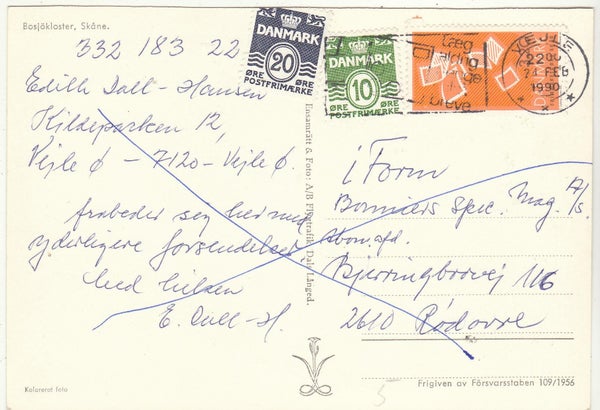 Bosjökloster, Skåne.
332 183 22
Edith Dall-Hansen
Kildeparken 12,
Vejle Ø - 7120 - Vejle Ø.
frabeder sig hermed
yderligere forsendelser
Med hilsen
E. Dall-H.
DANMARK
20
ØRE ØRE
POSTFRIMÆRKE
DANMARK
10
ØRE ØRE
POSTFRIMÆRKE
Læg
aldrig
penge
i
breve
VEJLE
22
21 FEB
1990
Ensamrätt & Foto: A/B Flygtrafik, Dals Långed.
i Form
Bonniers Spec. Mag. A/S.
Abonafd.
Bjerringbrovej 116
2610 Rødovre
5
Kolorerat foto
Frigiven av Försvarsstaben 109/1956